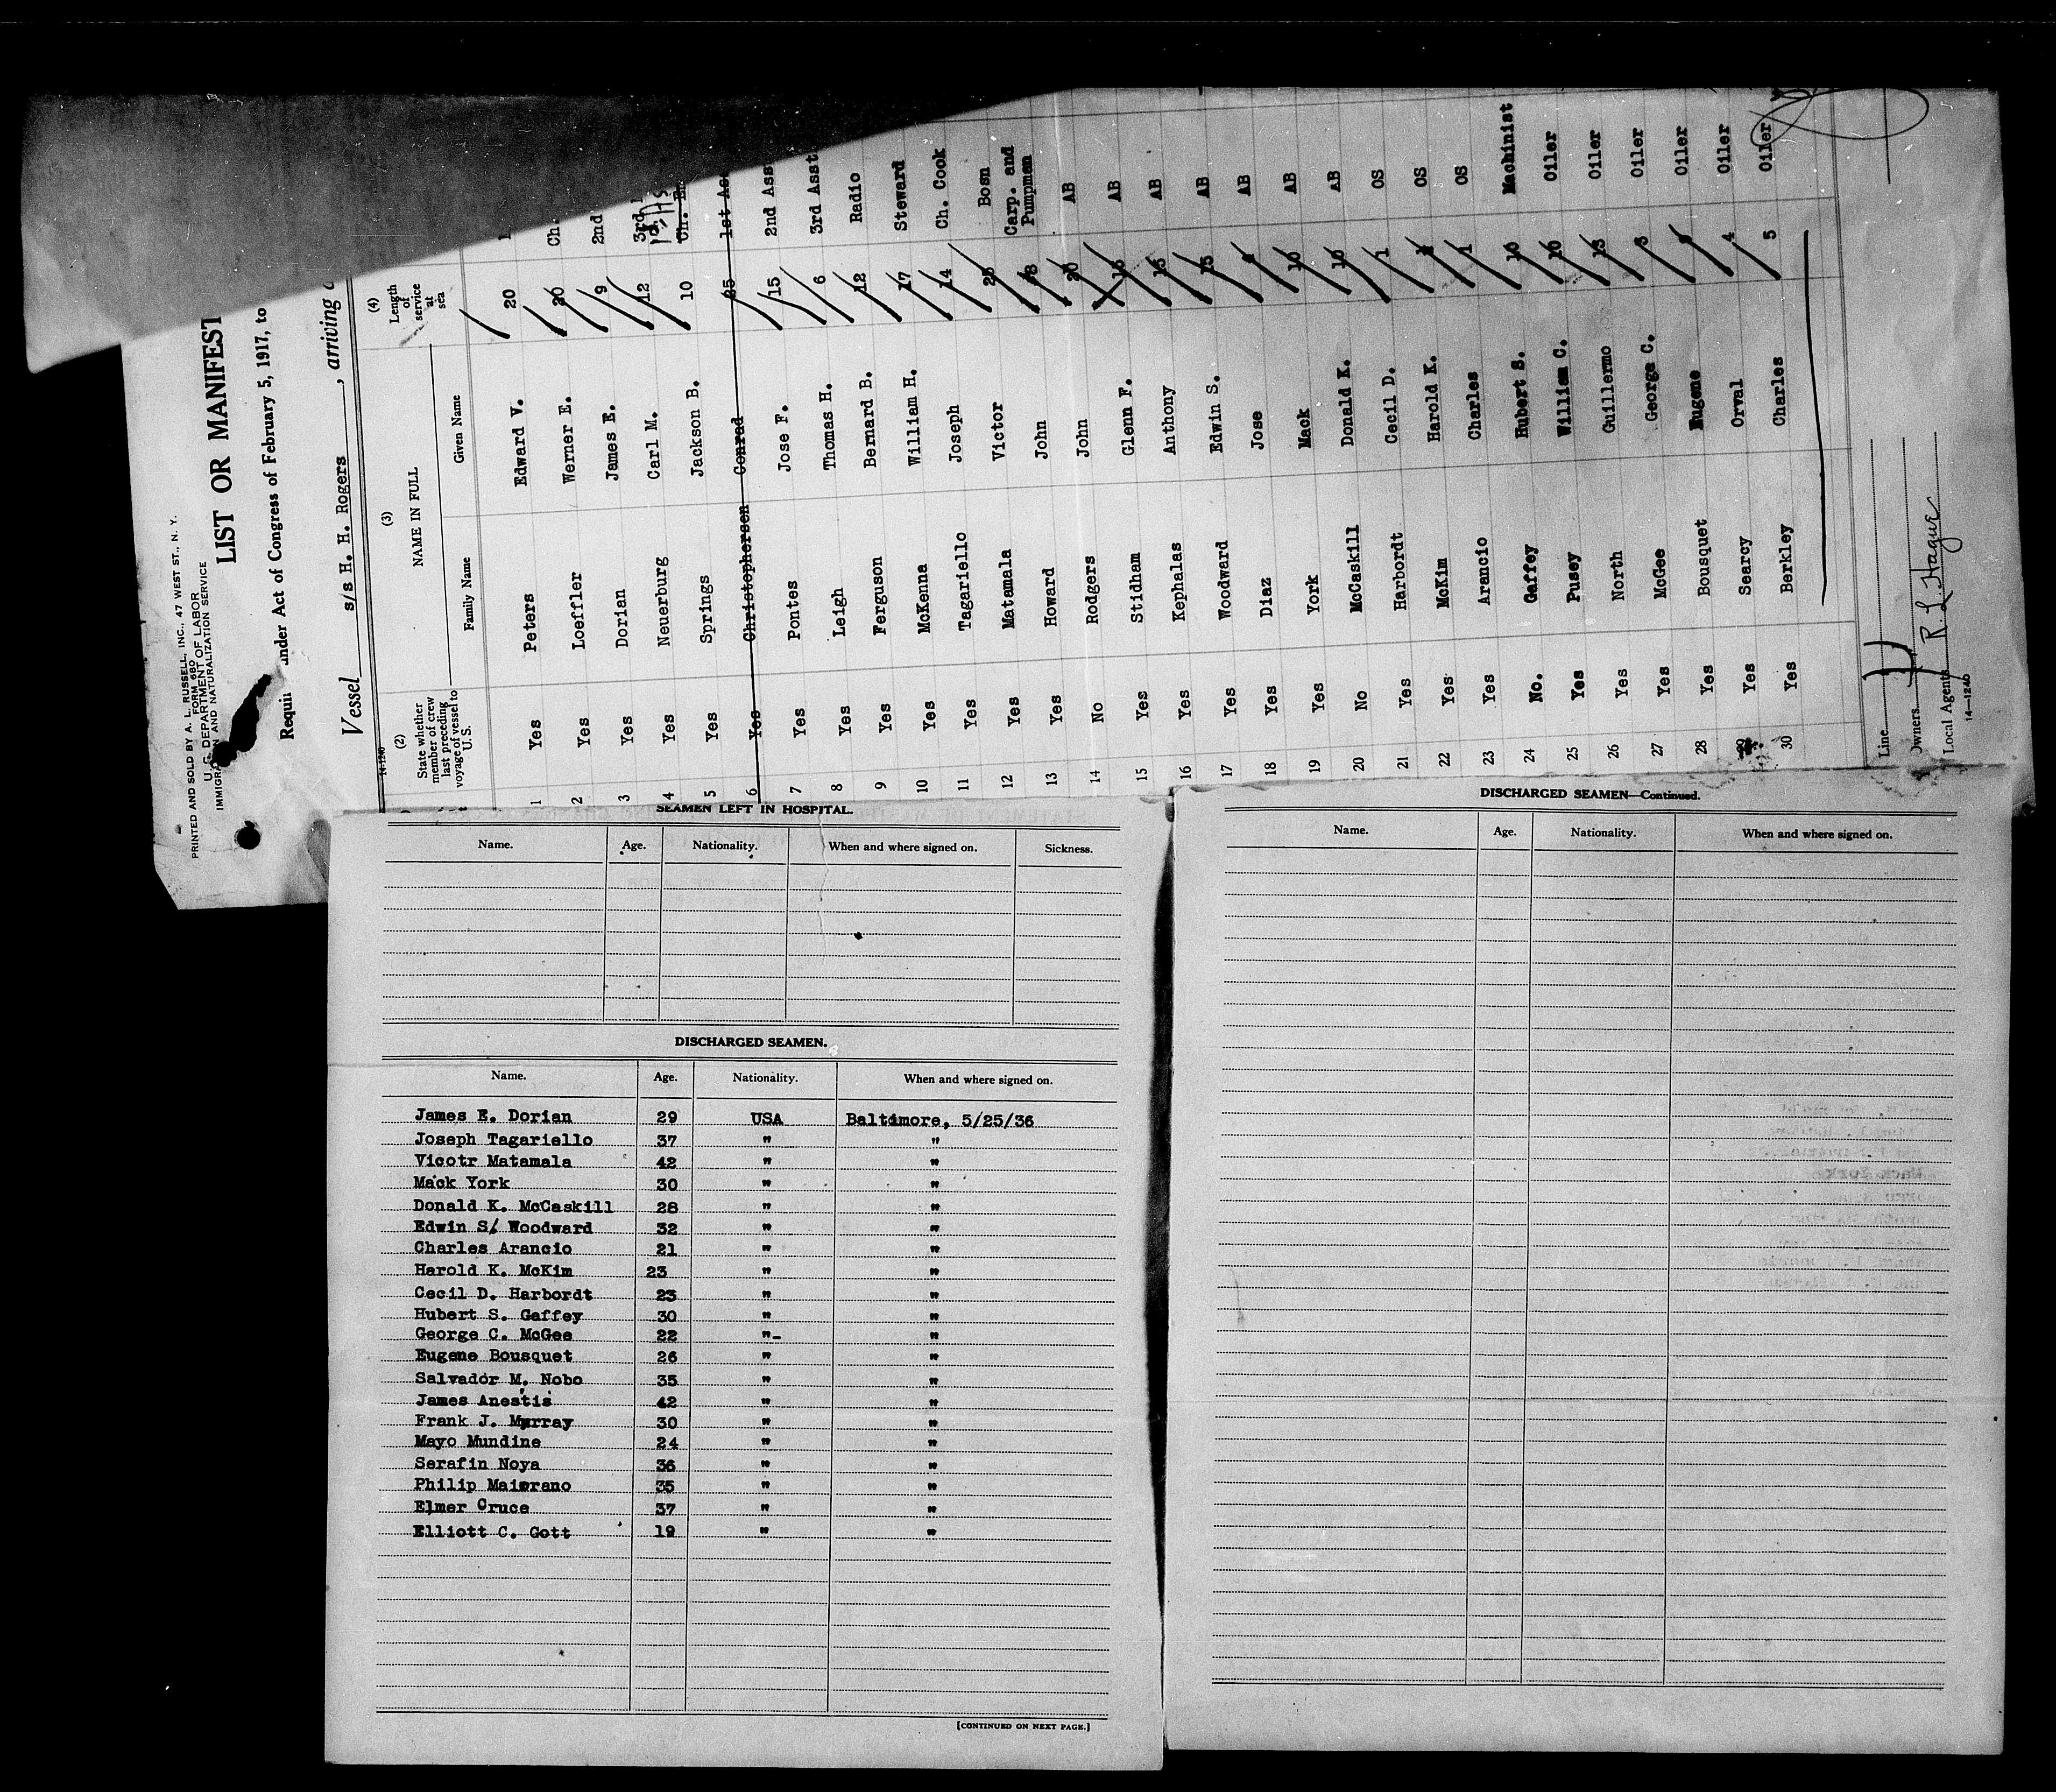 PRINTED AND SOLD BY A. L. RUSSELL, INC., 47 WEST ST., N. Y.
FORM 680
U. S. DEPARTMENT OF LABOR
IMMIGRATION AND NATURALIZATION SERVICE
LIST OR MANIFEST
under Act of Congress of February 5, 1917, to
Vessel s/s H. H. Rogers, arriving
14-1240
(2) (3) (4)
State whether member of crew last preceding voyage of vessel to U. S.
NAME IN FULL
Family Name Given Name
Length of service at sea
1 Yes Peters Edward V. 20
2 Yes Loeffler Werner E. 20 Ch.
3 Yes Dorian James E. 9 2nd
4 Yes Neuerburg Carl M. 12 3rd
5 Yes Springs Jackson B. 10 Ch.
6 Yes Christophersen Conrad 25 1st
7 Yes Pontes Jose F. 15 2nd Asst
8 Yes Leigh Thomas H. 6 3rd Asst
9 Yes Ferguson Bernard B. 12 Radio
10 Yes McKenna William H. 17 Steward
11 Yes Tagariello Joseph 14 Ch. Cook
12 Yes Matamala Victor 25 Bosn
13 Yes Howard John 18 Carp. and Pumpman
14 No Rodgers John 20 AB
15 Yes Stidham Glenn F. AB
16 Yes Kephalas Anthony 15 AB
17 Yes Woodward Edwin S. 15 AB
18 Yes Diaz Jose AB
19 Yes York Mack 10 AB
20 No McCaskill Donald K. 10 AB
21 Yes Harbordt Cecil D. 1 OS
22 Yes McKim Harold K. OS
23 Yes Arancio Charles 1 OS
24 No. Gaffey Hubert S. 10 Machinist
25 Yes Pusey William C. 10 Oiler
26 Yes North Guillermo 13 Oiler
27 Yes McGee George C. 3 Oiler
28 Yes Bousquet Eugene Oiler
29 Yes Searcy Orval 4 Oiler
30 Yes Berkley Charles 5 Oiler
Line
Owners
Local Agents R. L. Hague
14-1240
SEAMEN LEFT IN HOSPITAL.
Name. Age. Nationality. When and where signed on. Sickness.
DISCHARGED SEAMEN.
Name. Age. Nationality. When and where signed on.
James E. Dorian 29 USA Baltimore, 5/25/36
Joseph Tagariello 37 " "
Vicotr Matamala 42 " "
Mack York 30 " "
Donald K. McCaskill 28 " "
Edwin S/ Woodward 32 " "
Charles Arancio 21 " "
Harold K. McKim 23 " "
Cecil D. Harbordt 23 " "
Hubert S. Gaffey 30 " "
George C. McGee 22 "- "
Eugene Bousquet 26 " "
Salvador M. Nobo 35 " "
James Anestis 42 " "
Frank J. Murray 30 " "
Mayo Mundine 24 " "
Serafin Noya 36 " "
Philip Maiorano 35 " "
Elmer Cruce 37 " "
Elliott C. Gott 19 " "
[CONTINUED ON NEXT PAGE.]
DISCHARGED SEAMEN—Continued.
Name. Age. Nationality. When and where signed on.